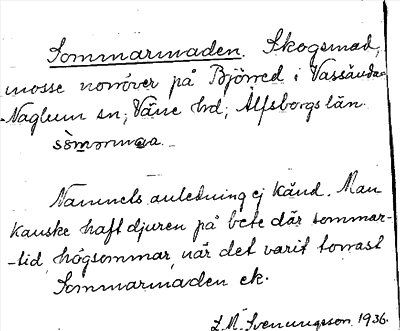 Sommarmaden. Skogsmad,
mosse norröver på Björred i Vassända-
-Naglum sn; Väne hd; Älfsborgs län.
sòmərmaa
Namnets anledning ej känd. Man
kanske haft djuren på bete där sommar-
-tid, högsommar, när det varit torrast
Sommarmaden ek.
L. M. Svenungsson 1936.